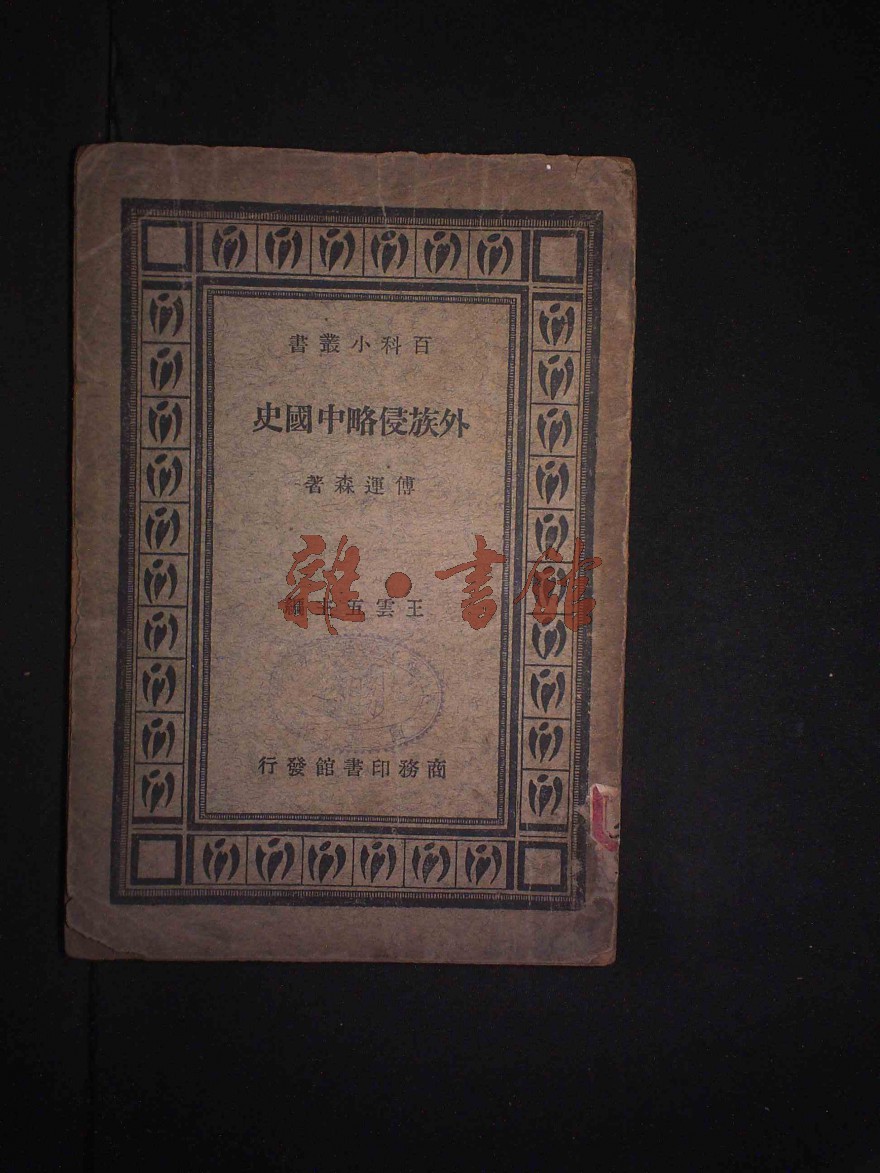 百科小叢書
外族侵略中國史
傅運森著
雜·書館
王雲五主編
商務印書館發行